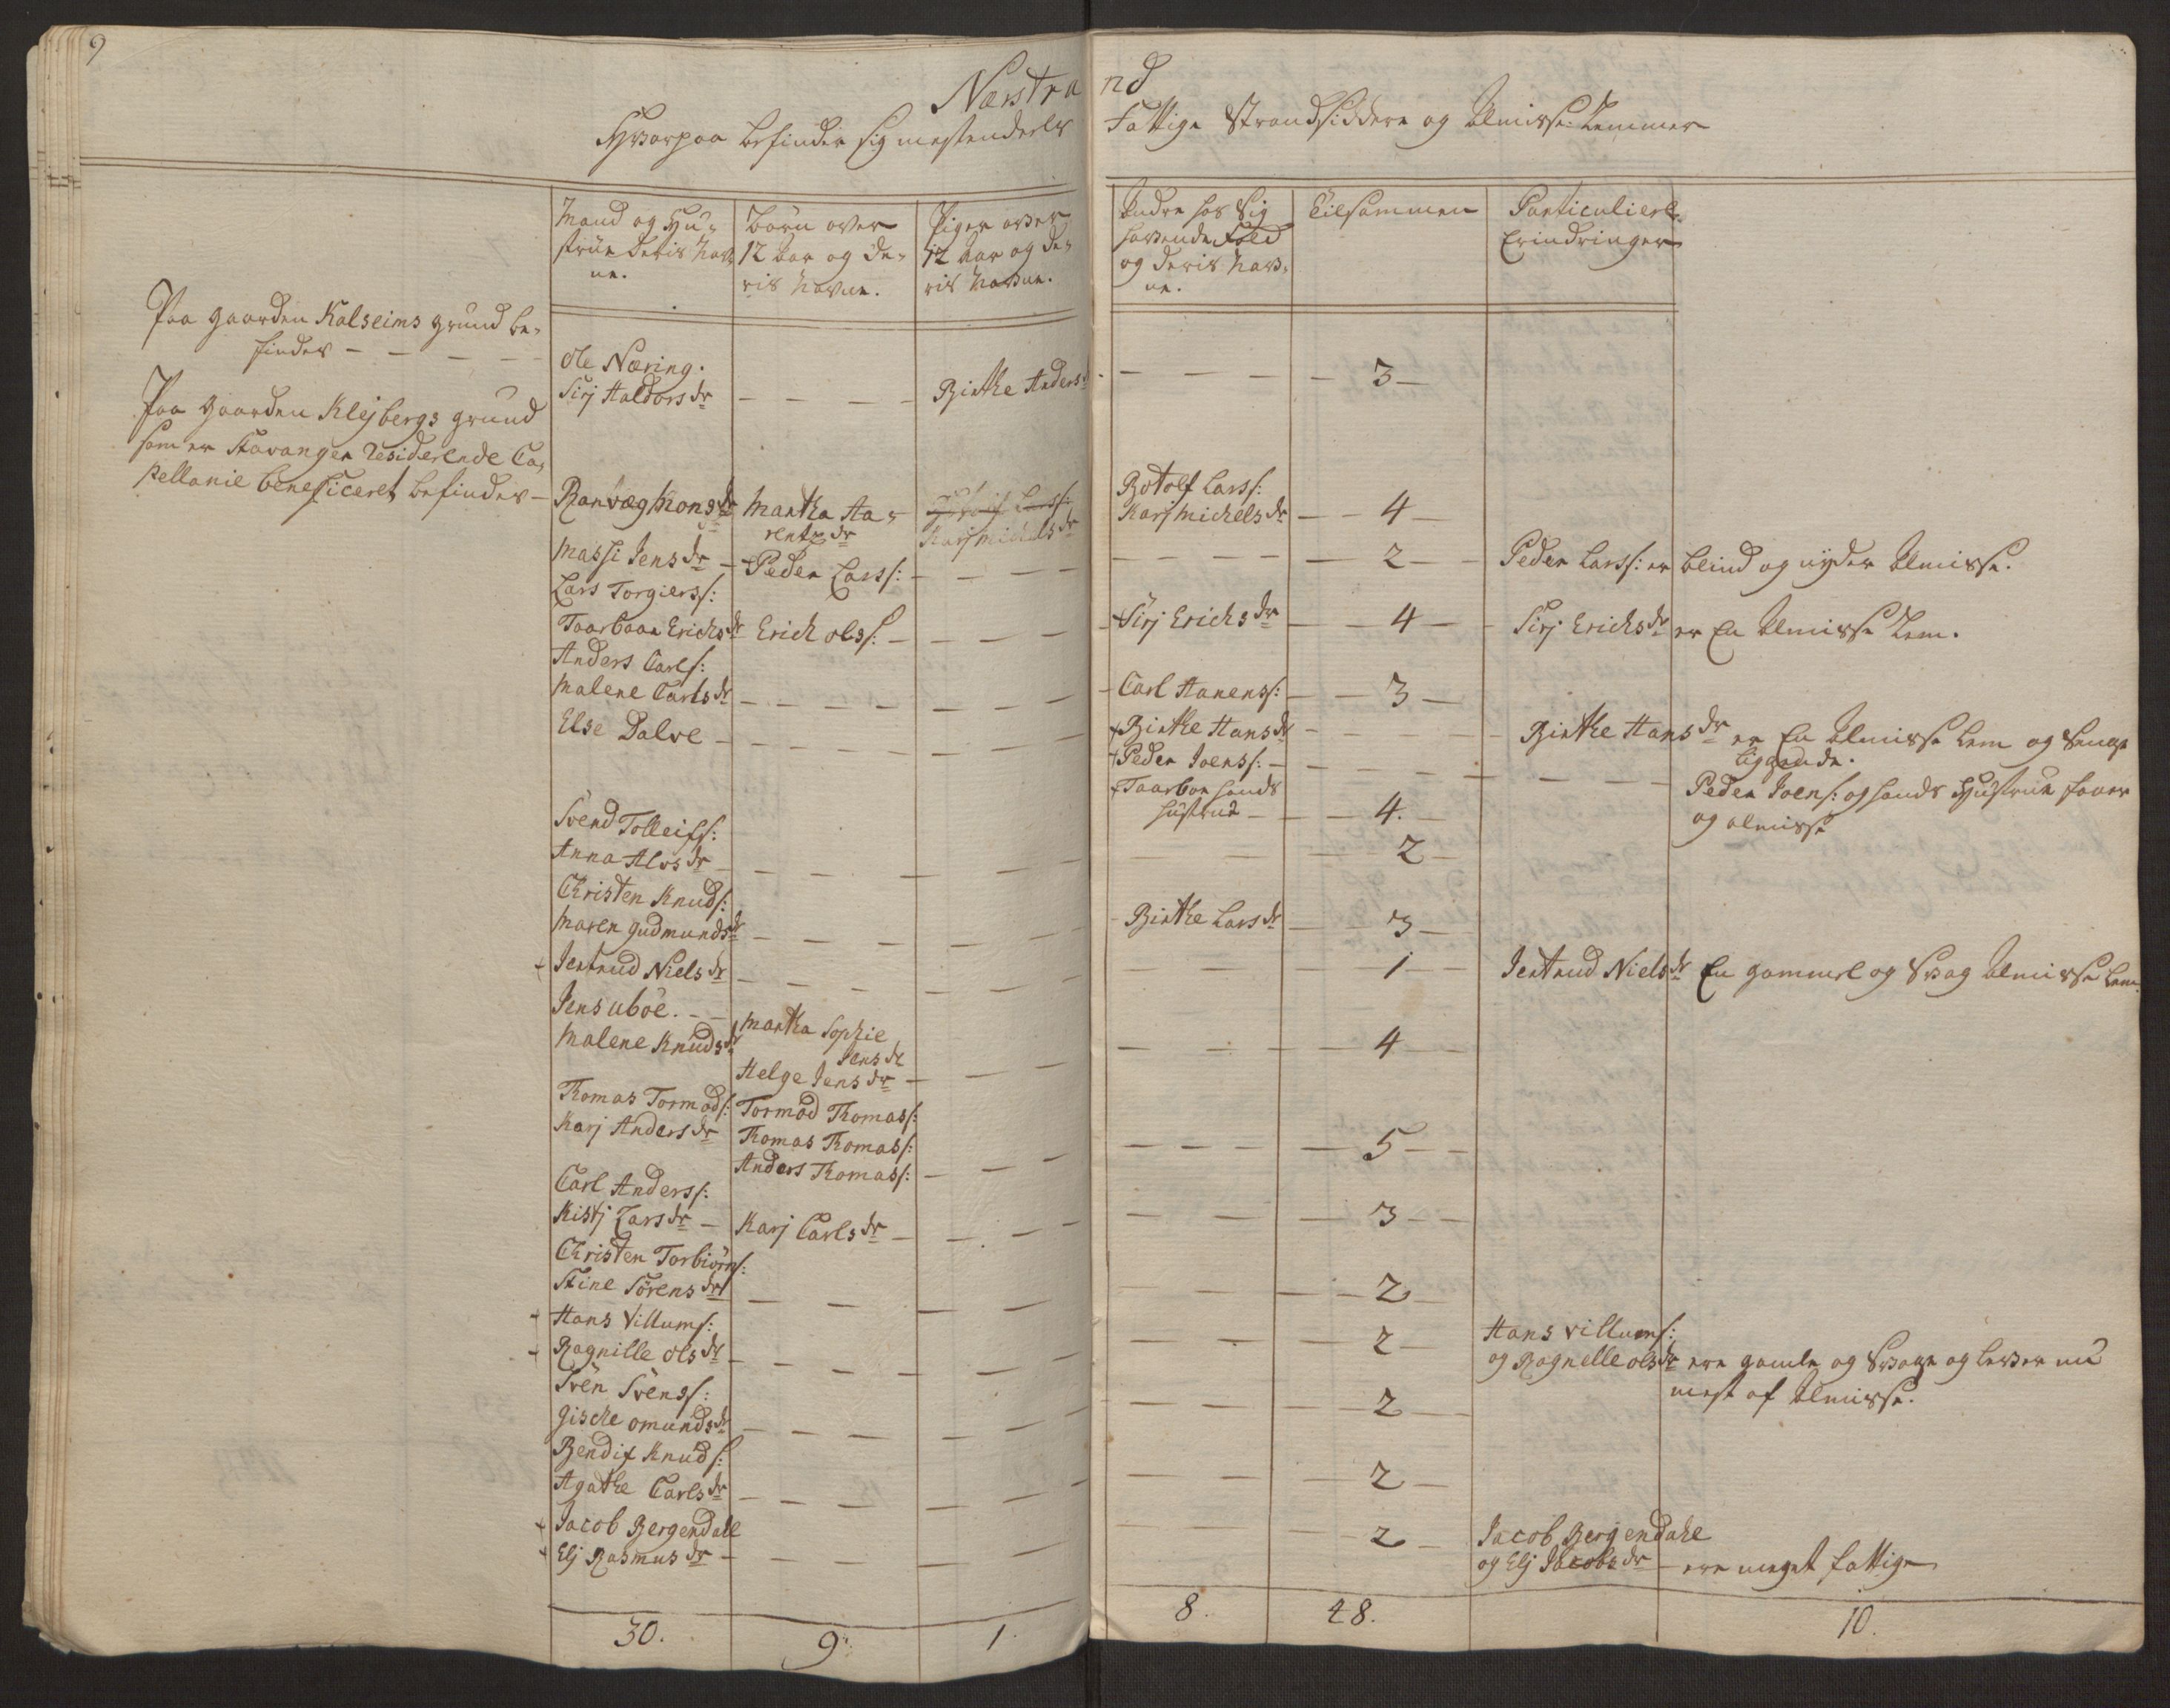 9
Næstrand
Hvorpaa befinder sig mestendeels Fattige Strandsiddere og Almisse Lemmer
Mand og Hu-
strue deris nav-
ne.
Börn over
12 Aar og de-
ris Navne.
Piger over
12 Aar og de-
ris Navne.
Andre hos sig
havende Folck
og deris Nav-
ne.
Tilsammen
Particuliere
Erindringer
Paa gaarden Kalseims grund be-
findes - - - -
Ole Næring.
Sirj Haldorsdr - - - - Birthe Andersd - - - 3 -
Paa Gaarden Klejbergs grund
som er Stavanger Residerende Ca-
pellanie beneficeret befindes -
Ranvæg Monsdr Martha Aa-
rentzdr
Karj Michelsdr
Botolf Larss:
Karj Michelsdr - - 4 -
Massi Jensdr - Peder Larss: - - - - - - - - 2 - - Peder Larss: er blind og nyder Almisse.
Lars Torgierss:
Taarboar Erichsdr Erich Olss: - - - - Sirj Erichsdr - - 4 - - Sirj Erichsdr er En Almisse Lem.
Anders Carls:
Malene Carlsdr - - - - - - - - Carl Hanens: - - 3 -
Else Dalve - - - - - - - - + Birthe Hansdr - - Birthe Hansdr er En Almisse Lem og Senge
liggende.
+ Peder Joens: - - - - - - - -
+ Taarbor hands
hustrue - - - 4. -
Peder Joens: og hands Hustrue faaer
og almisse
Svend Tolleifs:
Anna Alvsdr - - - - - - - - - - 2 -
Christen Knuds:
Maren Gudmundsdr - - - - - - - Birthe Larsdr - - 3 -
+ Jertrud Nielsdr - - - - - - - - - 1 - - Jertrud Nielsdr En gammel og Svag Almisse Lem.
Jens Uböe. - - Martha Sophie
Jensdr
Malene Knudsdr
Helge Jensdr - - - - - - 4 - -
Thomas Tormods: Tormod Thomass:
Karj Andersdr Thomas Thomass:
Anders Thomass: - - - - - - - 5 - -
Carl Anderss:
Kistj Larsdr - Karj Carlsdr - - - - - - - 3 - -
Christen Torbiörns:
Stine Sörensdr - - - - - - - - 2 -
+ Hans Villums:
+ Ragnille Olsdr - - - - - - - - - - 2 - Hans Villums:
og Ragnelle Olsdr ere gamle og Svage og lever nu
mest af Almisse.
Sven Svens:
Gische Omundsdr - - - - - - - - - - - 2 -
Bendix Knuds:
Agathe Carlsdr - - - - - - - - - 2 -
+ Jacob Bergendall
+ Elj Rasmusdr - - - - - - - - - - 2 - Jacob Bergendahl
og Elj Jacobsdr - ere meget fattige
30. 9. 1. 8. 48. 10.